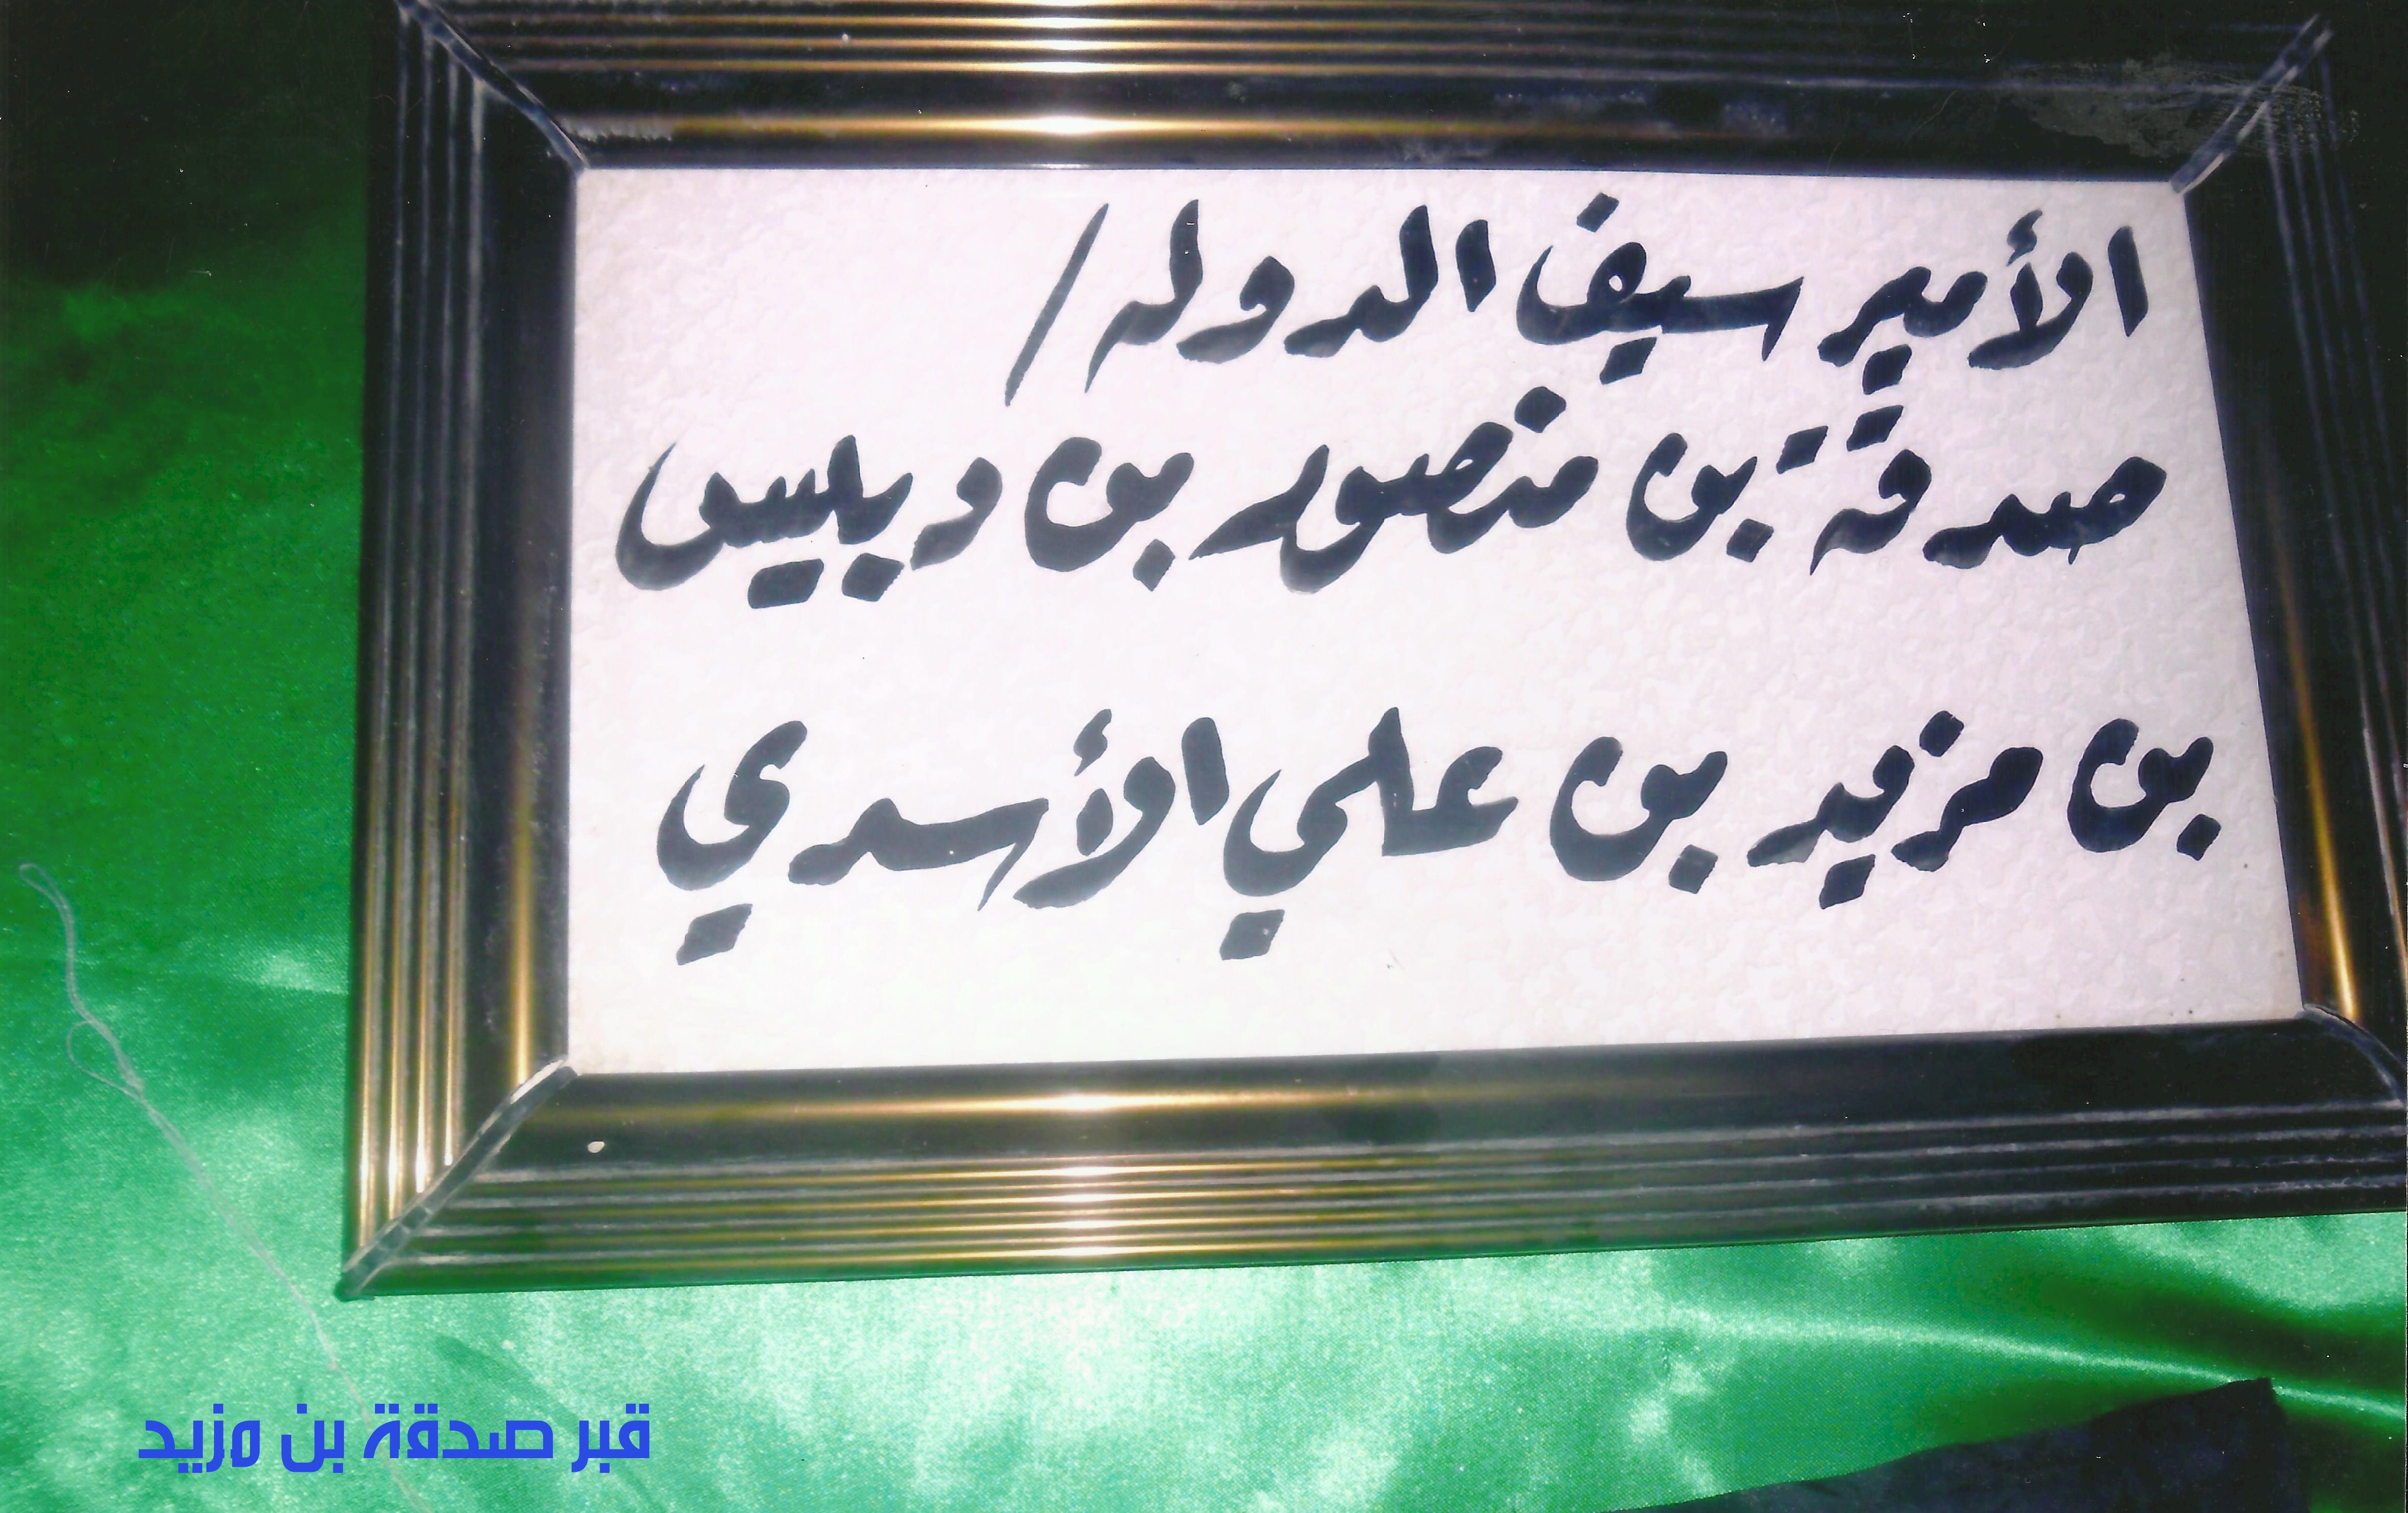 الأمير سيف الدوله /
صدقة بن منصور بن دبيس
بن مزيد بن علي الأسدي
قبر صدقة بن مزيد